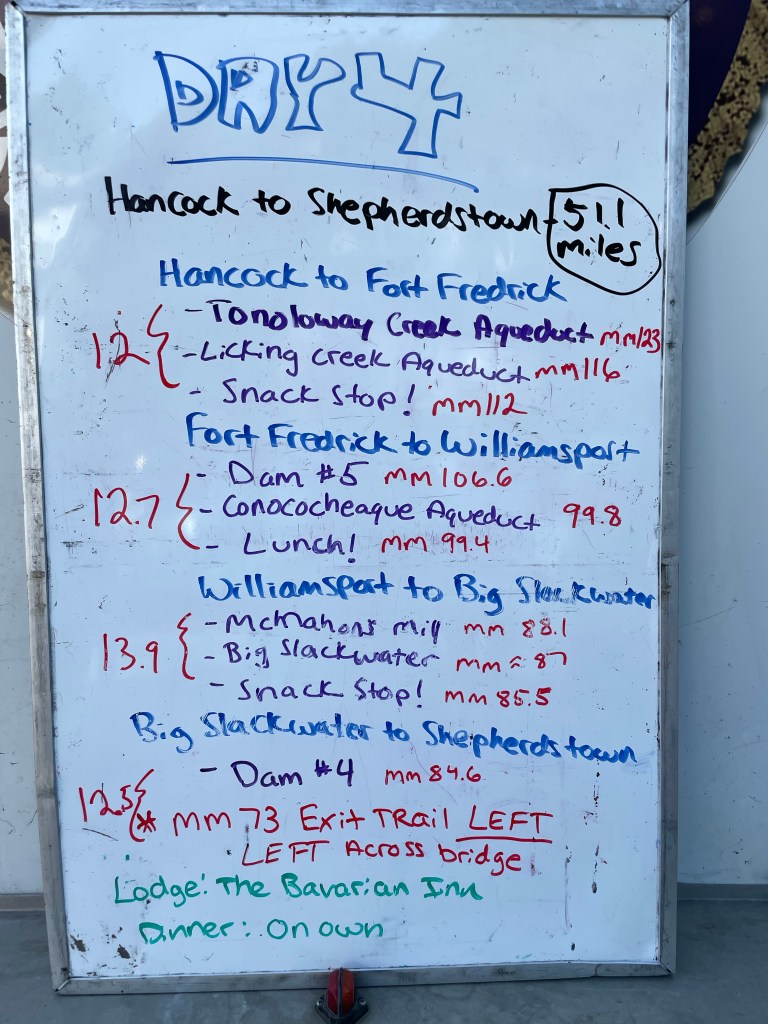 DAY 4
Hancock to Shepherdstown - 51.1 miles
Hancock to Fort Fredrick
12 { - Tonoloway Creek Aqueduct mm123
- Licking Creek Aqueduct mm116
- Snack Stop! mm112
Fort Fredrick to Williamsport
12.7 { - Dam #5 mm 106.6
- Conococheaque Aqueduct 99.8
- Lunch! mm 99.4
Williamsport to Big Slackwater
13.9 { - McMahons Mill mm 88.1
- Big Slackwater mm ≈ 87
- Snack Stop! mm 85.5
Big Slackwater to Shepherdstown
- Dam #4 mm 84.6
12.5 { * mm 73 Exit TRail LEFT
LEFT Across bridge
Lodge: The Bavarian Inn
Dinner: On own